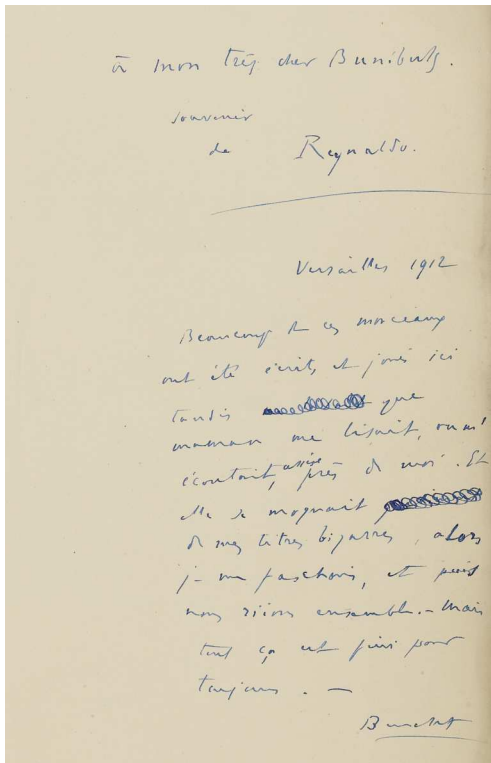 à mon très cher Bunibuls.
souvenir
de Reynaldo.
Versailles 1912
Beaucoup de ces morceaux
ont été écrits et joués ici
tandis que
maman me lisait, ou m'
écoutait, assise près de moi. Et
elle se moquait
de mes titres bizarres, alors
je me faschais, et puis
nous riions ensemble. – Mais
tout ça est fini pour
toujours. –